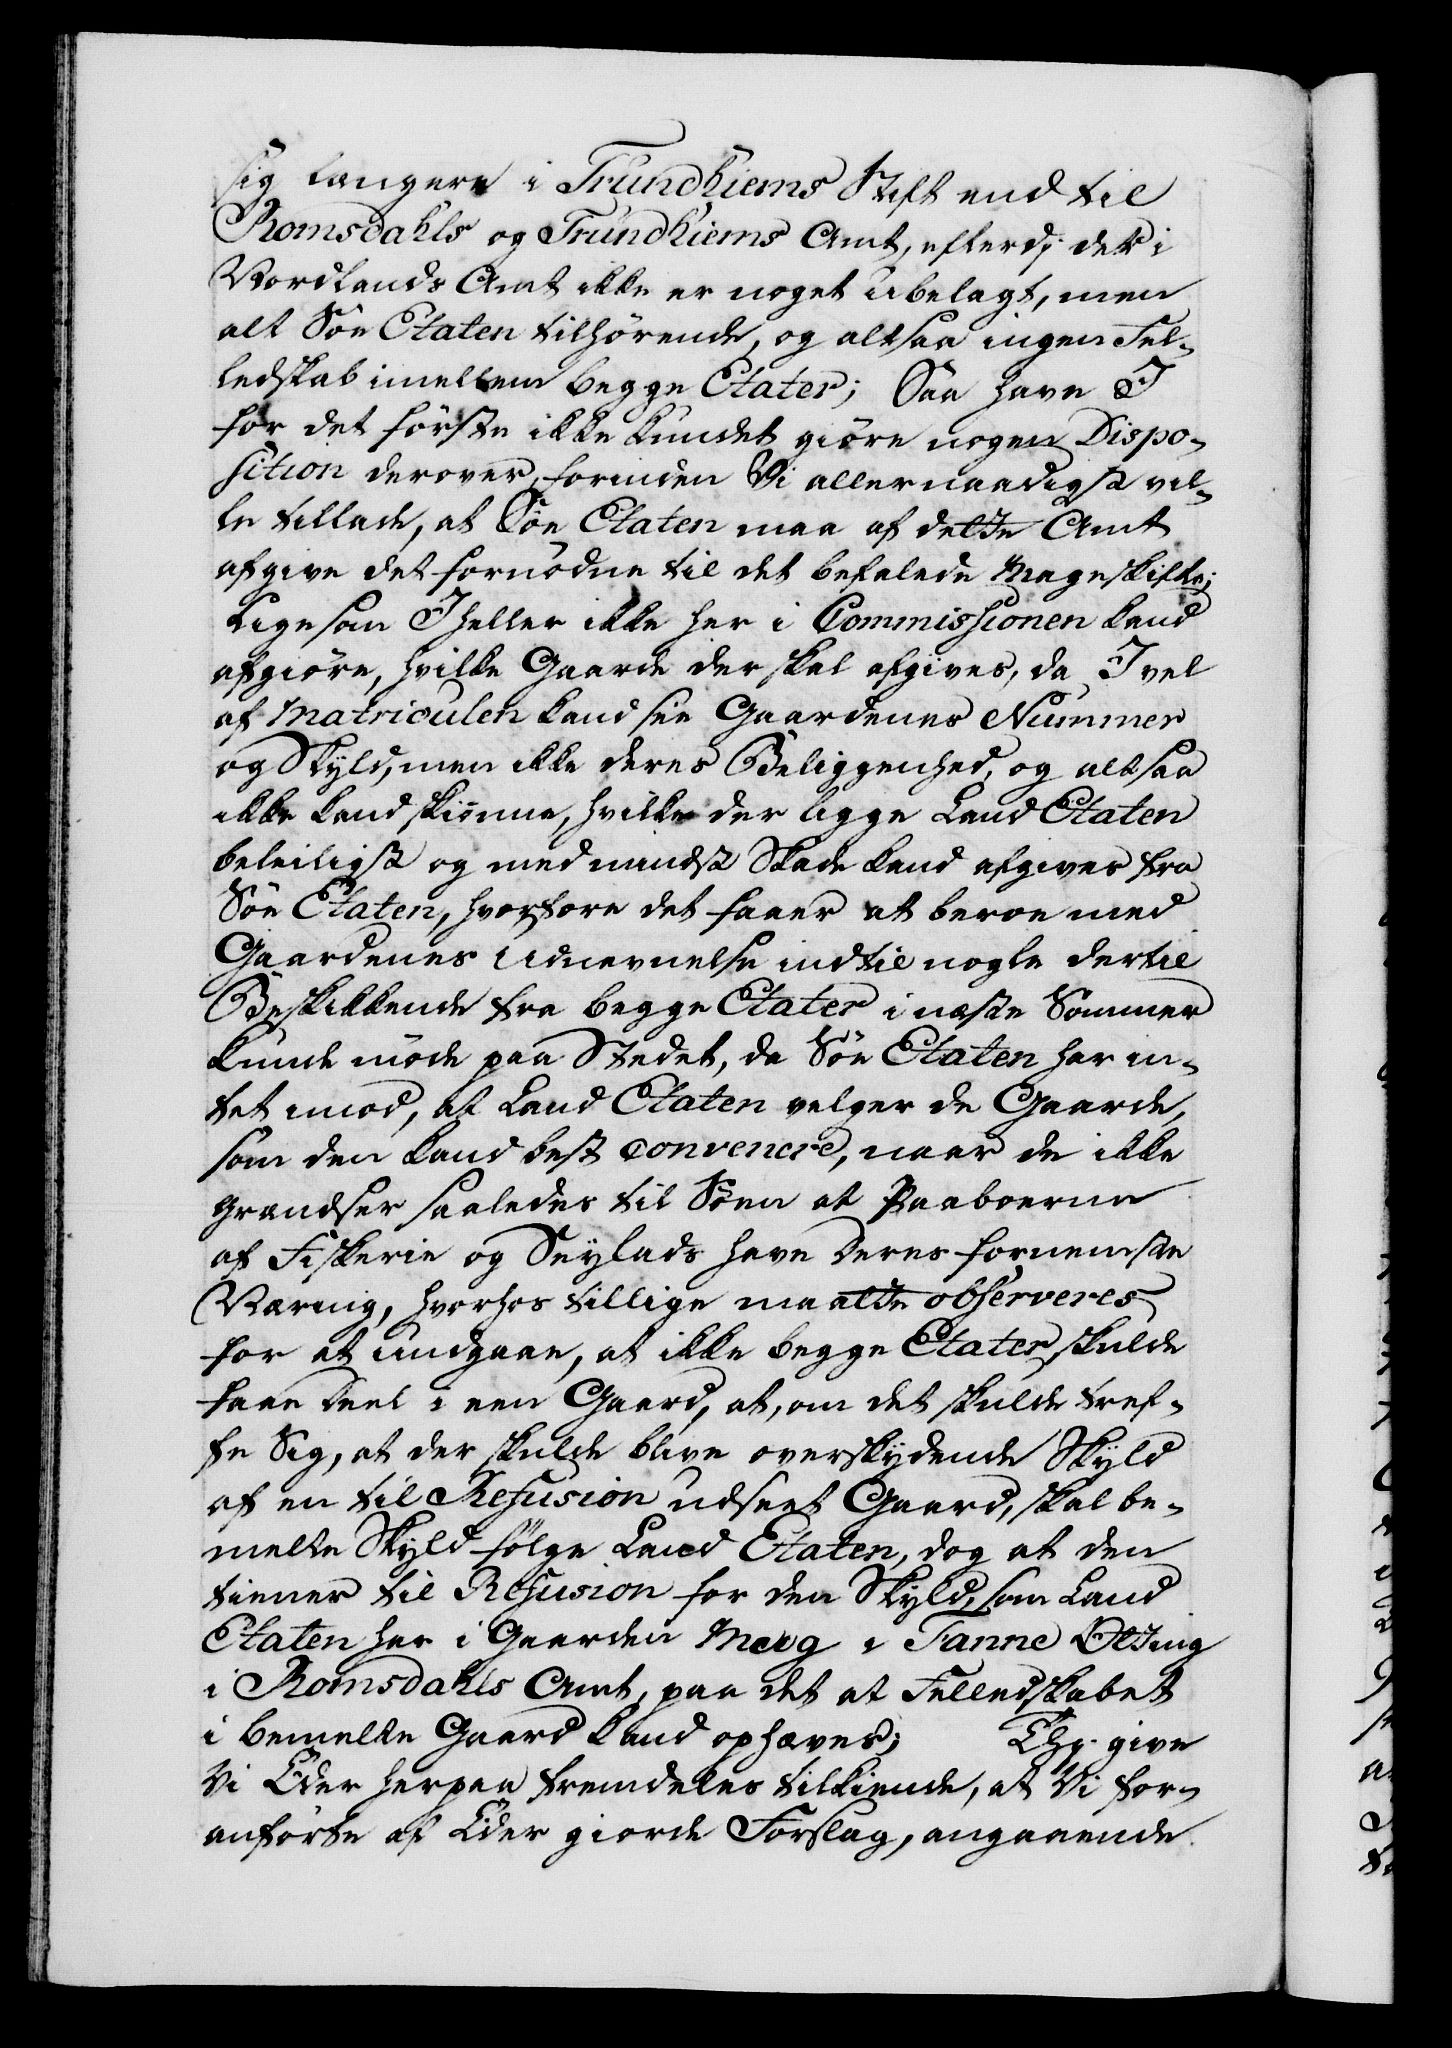 sig længere i Trundhiems Stift end til
Romsdahls og Trundhiems Amt, efterdj det i
Nordlands Amt ikke er noget ubelagt, men
alt Söe Etaten tilhörende, og altsaa ingen Fel-
ledskab imellem begge Etater; Saa have I
for det förste ikke kundet giöre nogen Dispo-
sition derover, forinden Vi allernaadigst vil-
le tillade, at Söe Etaten maa af dette Amt
afgive det fornödne til det befalede Mageskifte;
Ligesom I heller ikke her i Commissionen kand
afgiöre, hvilke Gaarde der skal afgives, da I vel
af Matriculen kand see Gaardenes Nummer
og Skyld, men ikke deres Beliggenhed, og altsaa
ikke kand skiönne, hvilke der ligge Land Etaten
beleiligst og med mindst Skade kand afgives fra
Söe Etaten, hvorfore det faaer at beroe med
Gaardenes Udnevnelse indtil nogle dertil
Beskikkende fra begge Etater i næste Sommer
kunde möde paa Stedet, da Söe Etaten har in-
tet imod, at Land Etaten velger de Gaarde,
som den kand best convenere, naar de ikke
grændser saaledes til Söen at Paaboerne
af Fiskerie og Seylads have deres fornemste
Næring, hvorhos tillige maatte observeres
for at undgaae, at ikke begge Etater skulde
faae Deel i een Gaard, at, om det skulde tref-
fe Sig, at der skulde blive overskydende Skyld
af en til Refusion udseet Gaard, skal be-
melte Skyld fölge Land Etaten, dog at den
tiener til Refusion for den Skyld, som Land
Etaten har i Gaarden Meeg i Tanne Otting
i Romsdahls Amt, paa det at Felledskabet
i bemelte Gaard kand ophæves; Thj give
Vi Eder herpaa fremdeles tilkiende, at Vi for-
anförte af Eder giorde Forslag, angaaende